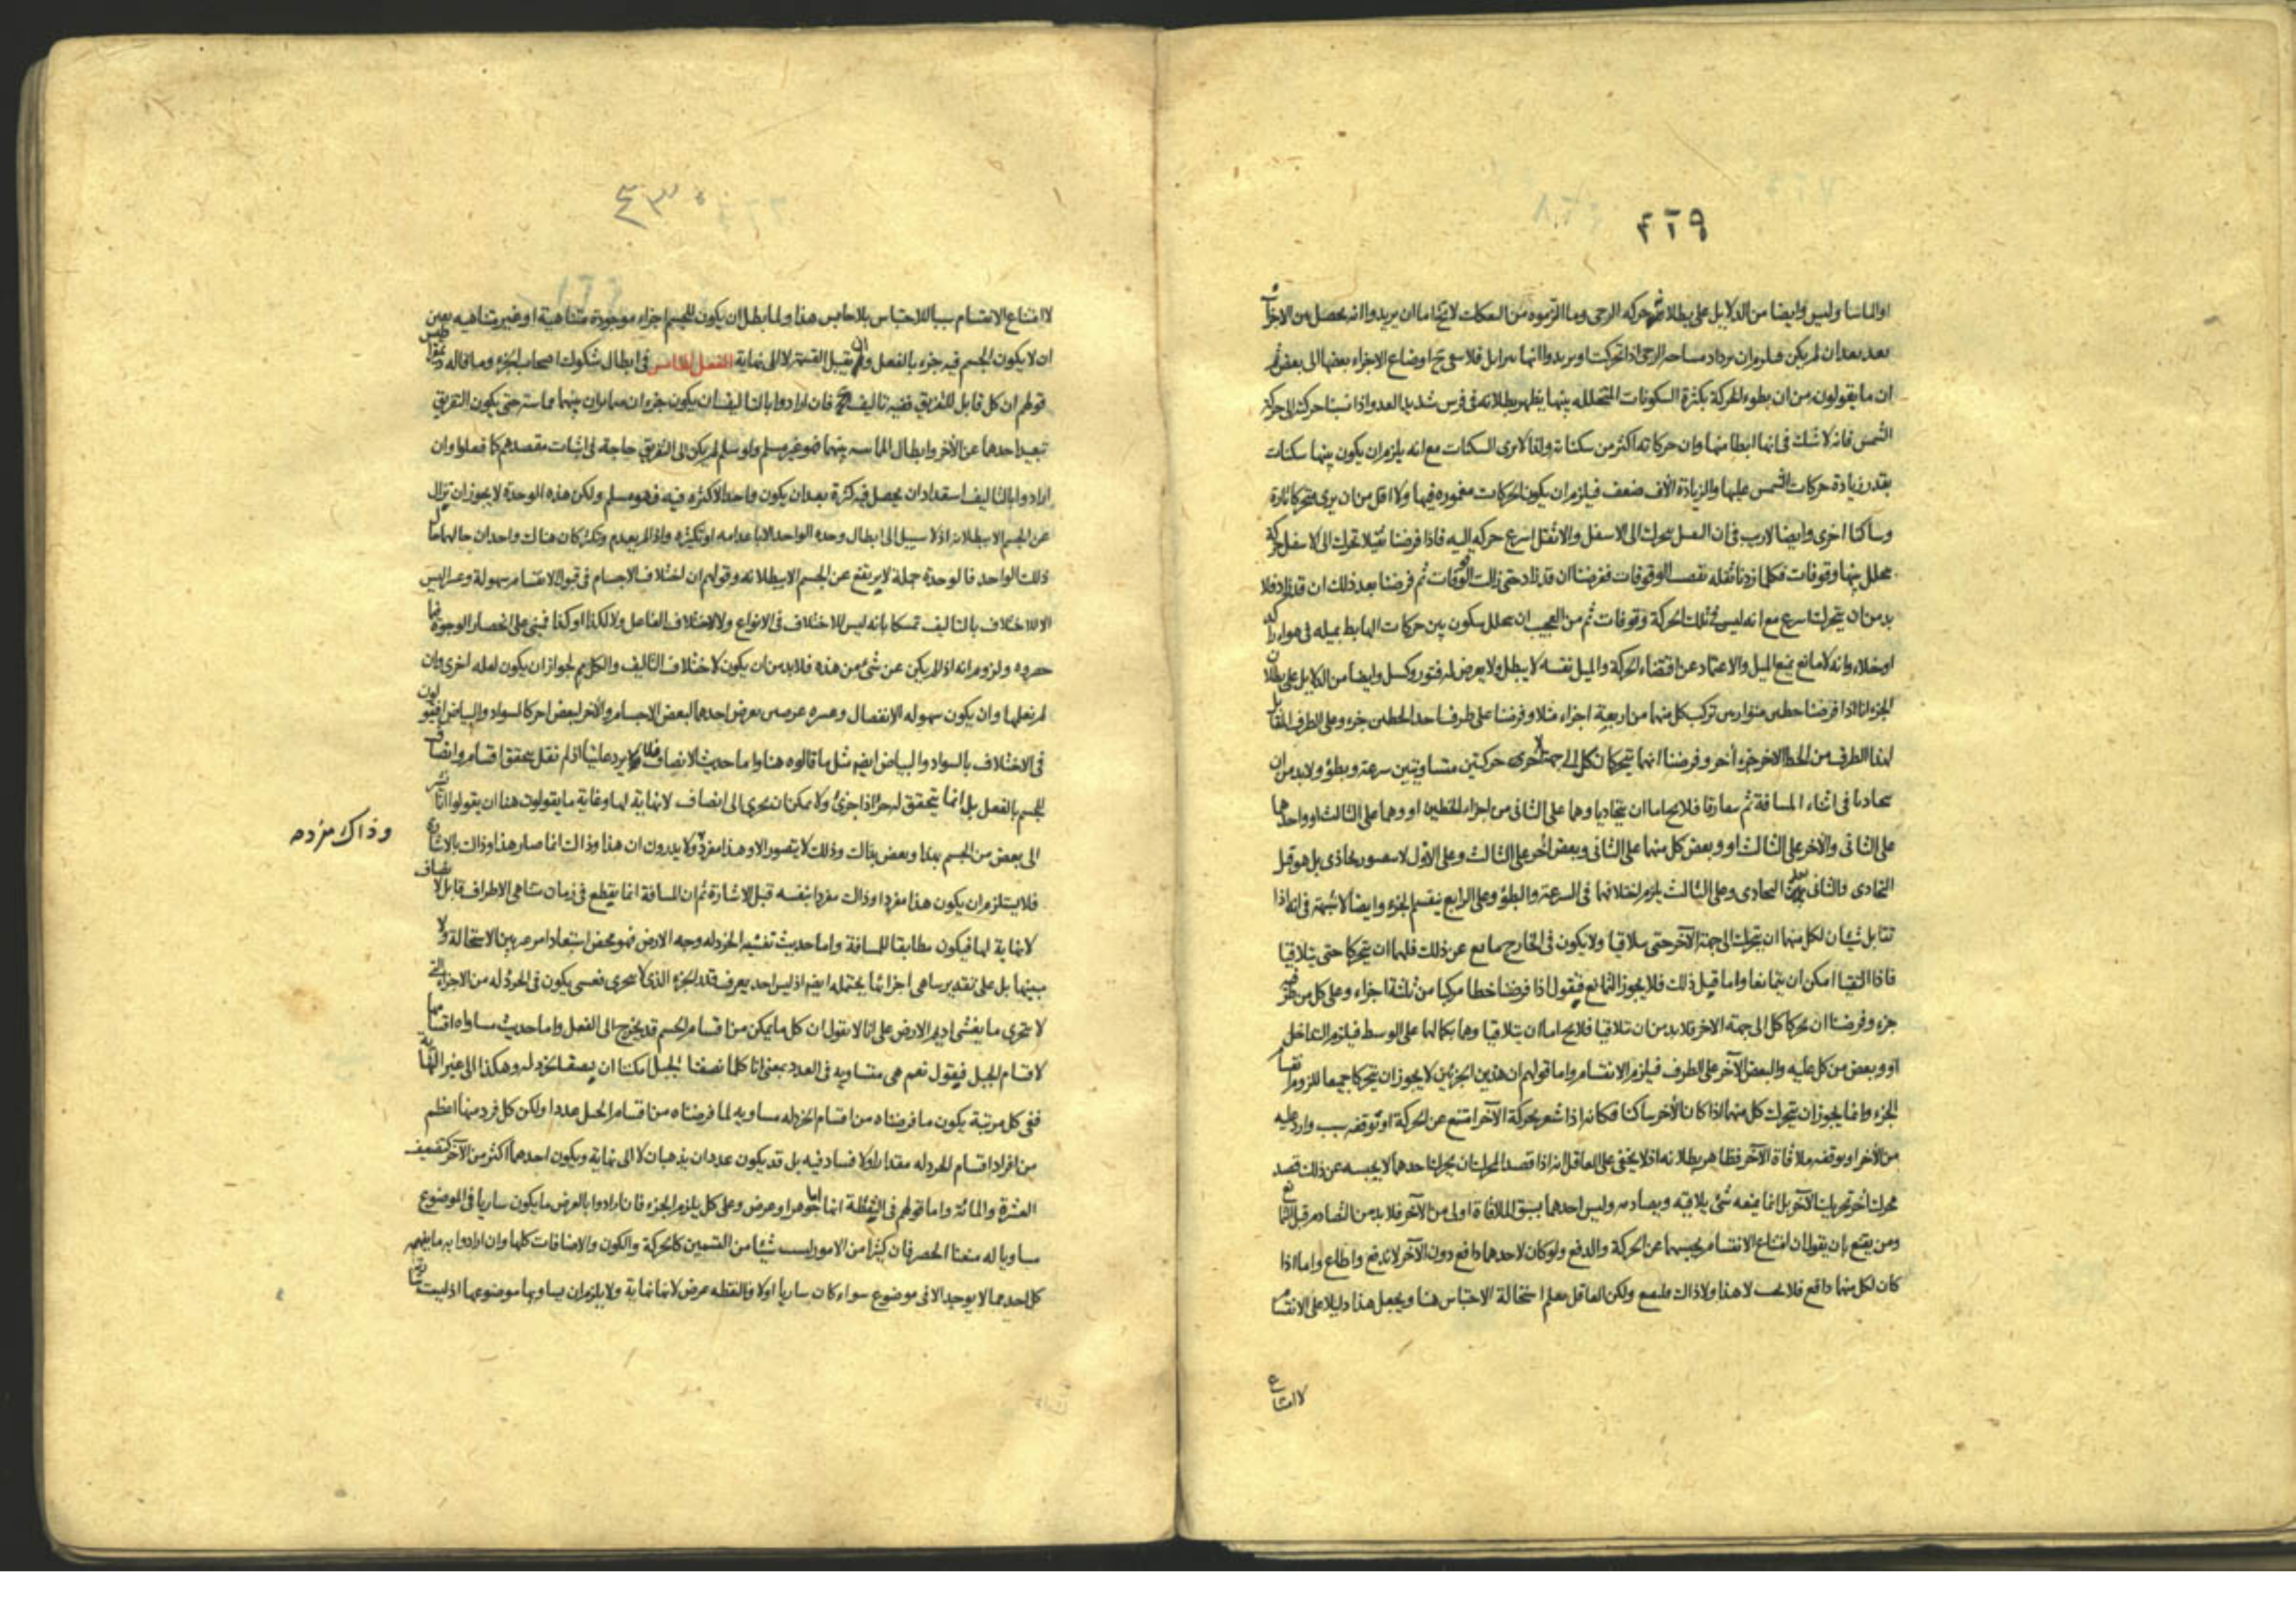 ٤٢٩
وايضا من الدلايل على بطلانه حركه الرحى وما التزموه من السكنات لانهم اما ان يريدوا انه يحصل من الاجزآء
بعد بعد ان لم يكن فيلزم ان يزداد مساحه الرحى اذا تحركت او يريدوا اوضاع الاجزاء بعضها الى بعض ثم
ان ما يقولون من ان بطوء الحركة بكثرة السكونات المتخلله بينها يظهر بطلانه فى فرس شديد العدو اذا نسبنا حركته الى حركة
الشمس فانه لا شك فى انها ابطا منها وان حركاته اكثر من سكناته ولهذا لا يرى السكنات مع انه يلزم ان يكون بينها سكنات
بقدر زيادة حركات الشمس عليها والزيادة آلاف ضعف فيلزم ان يكون الحركات مغموره فيها ولا اقل من ان يرى متحركا تارة
وساكنا اخرى وايضا لا ريب فى ان الثقيل يتحرك الى الاسفل والاثقل اسرع حركه اليه فاذا فرضنا ثقيلا تحرك الى الاسفل حركة
تخلل بينها وقوفات فكلما زدنا ثقله نقصت الوقوفات ففرضنا ان قد زاد حتى زالت الوقفات ثم فرضنا بعد ذلك ان قد زاد فلا
بد من ان يتحرك اسرع مع انه ليس فى تلك الحركة وقوفات ثم من العجيب ان يتخلل سكون بين حركات الهابط بميله فى هواء راكد
او خلاء وانه لا مانع يمنع الميل والاعتماد عن اقتضاء الحركة والميل نفسه لا يبطل ولا يعرض له فتور وكسل وايضا من الدلايل على بطلان
الجزء انا اذا فرضنا خطين متوازيين تركب كل منهما من اربعة اجزاء مثلا وفرضنا على طرف احد الخطين جزء وعلى الطرف المقابل
لهذا الطرف من الخط الاخر جزء آخر وفرضنا انهما يتحركان كل الى جهة الاخرى حركتين متساويتين سرعة وبطؤ ولا بد من ان
يتحاذيا فى اثناء المسافة ثم يتفارقا فلا يخ اما ان يتحاذيا وهما على الثانى من اجزاء الخطين او وهما على الثالث او واحدهما
على الثانى والآخر على الثالث او وبعض كل منهما على الثانى وبعض آخر على الثالث وعلى الاول لا يتصور تحاذى بل هو قبل
التحاذى والثانى بعد التحاذى وعلى الثالث يلزم اختلافهما فى السرعة والبطؤ وعلى الرابع ينقسم الجزء وايضا لا شبهة فى انه اذا
تقابل شيئان لكل منهما ان يتحرك الى جهة الآخر حتى يتلاقيا ولا يكون فى الخارج مانع عن ذلك فلهما ان يتحركا حتى يتلاقيا
فاذا التقيا امكن ان يتمانعا واما قبل ذلك فلا يجوز التمانع فنقول اذا فرضنا خطا مركبا من ثلثة اجزاء وعلى كل من طرفيه
جزء وفرضنا ان يحركا كل الى جهة الاخر فلا بد من ان يتلاقيا فلا يخ اما ان يتلاقيا وهما بكمالهما على الوسط فيلزم التداخل
او وبعض من كل عليه والبعض الآخر على الطرف فيلزم الانقسام واما قولهم ان هذين الجزئين لا يجوز ان يتحركا جميعا للزوم انقسام
الجزء وانما يجوز ان يتحرك كل منهما اذا كان الآخر ساكنا فكانه اذا شعر بحركة الآخر امتنع عن الحركة او توقفه بسبب وارد عليه
من الآخر او يوقفه ملاقاة الآخر فظاهر بطلانه اذ لا يخفى على العاقل انه اذا قصد المحركان يحركا احدهما لا يحبسه عن ذلك قصد
محرك آخر تحريك الآخر بل انما يمنعه شىء يلاقيه ويصادمه وليس احدهما بسبق الملاقاة اولى من الآخر فلا بد من التصادم قبل التمانع
ومن يقنع بان يقول ان امتناع الانقسام يحبسهما عن الحركة والدفع ولو كان لاحدهما دافع دون الآخر لاندفع واطاع واما اذا
كان لكل منهما دافع فلا هذا ولا ذاك ولكن العاقل يعلم استحالة الاحتباس هنا ويجعل هذا دليلا على الانقسام
لا امتناع
٤٣٠
لا امتناع الانقسام سببا للاحتباس بلا حابس هذا ولما بطل ان يكون للجسم اجزاء موجودة متناهية او غير متناهيه تعين
ان لا يكون للجسم فيه جزء بالفعل وان يقبل القسمة لا الى نهاية الفصل الخامس فى ابطال شكوك اصحاب الجزء وما قاله
قولهم ان كل قابل للتفريق ففيه تاليف فان ارادوا بالتاليف ان يكون جزءان متمايزان بينهما مماسة حتى يكون التفريق
تبعيد احدهما عن الآخر وابطال المماسه بينهما فهو غير مسلم ولو سلم لم يكن الى التفريق حاجة فى اثبات مقصدهم كما فعلوا وان
ارادوا بالتاليف استعداد ان يحصل فيه كثرة بعد ان يكون واحدا لا كثره فيه فهو مسلم ولكن هذه الوحدة لا يجوز ان تزال
عن الجسم الا ببطلانه اذ لا سبيل الى ابطال وحده الواحد الا باعدامه او تكثره واذا لم يعدم وتكثر كان هناك واحدان حالهما حال
ذلك الواحد فالوحدة جملة لا يرتفع عن الجسم الا ببطلانه وقولهم ان اختلاف الاجسام فى قبول الانقسام سهولة وعسرا ليس
الا للاختلاف بالتاليف تمسكا بانه ليس للاختلاف فى الانواع ولا لاختلاف الفاعل ولا لكذا او كذا فبنى على انحصار الوجوه فيما
حصروه ولزوم انه اذا لم يكن عن شىء من هذه فلا بد من ان يكون لاختلاف التاليف والكل مم لجواز ان يكون لعله اخرى وان
لم نعلمها وان يكون سهوله الانفصال وعسره عرضين يعرض احدهما لبعض الاجسام والآخر لبعض آخر كالسواد والبياض افيقولون
فى الاختلاف بالسواد والبياض ايضا مثل ما قالوه هنا واما حديث الانصاف فلا يرد علينا اذ لم نقل بتحقق اقسام وانصاف
للجسم بالفعل بل انما يتحقق له جزء اذا جزئ ولا يمكن ان يجرى الى انصاف لا نهاية لها وغاية ما يقولون هنا ان يقولوا انا نشير
الى بعض من الجسم بهذا وبعض بذاك وذلك لا يتصور الا وهذا مفرد ولا يدرون ان هذا وذاك انما صار هذا وذاك بالاشارة
وذاك مفرد صح
فلا يستلزم ان يكون هذا مفردا وذاك مفردا بنفسه قبل الاشارة ثم ان المسافة انما يقطع فى زمان متناهى الاطراف قابل لانصاف
لا نهاية لها فيكون مطابقا للمسافة واما حديث تغشيه الخردله وجه الارض فهو محض استبعاد امر غير بين الاستحالة ولا
مبينها بل على تقدير تناهى اجزائها يحتمله ايضا اذ ليس احد يعرف قدر الجزء الذى لا يتجزى فعسى يكون فى الخردله من الاجزاء التى
لا تتجزى ما يغشى اديم الارض على انا لا نقول ان كل ما يمكن من اقسام الجسم قد يخرج الى الفعل واما حديث مساواه اقسامها
لاقسام الجبل فيقول نعم هى متساويه فى العدد بمعنى انا كلما نصفنا الجبل امكننا ان ينصف الخردله وهكذا الى غير النهاية
ففى كل مرتبة يكون ما فرضناه من اقسام الخردله مساويه لما فرضناه من اقسام الجبل عددا ولكن كل فرد منها اعظم
من افراد اقسام الخردله مقدارا ولا فساد فيه بل قد يكون عددان يذهبان لا الى نهاية ويكون احدهما اكثر من الآخر كتضعيف
العشرة والمائة واما قولهم فى النقطة انها اما جوهر او عرض وعلى كل يلزم الجزء فان ارادوا بالعرض ما يكون ساريا فى الموضوع
مساويا له منعنا الحصر فان كثيرا من الامور ليست شيئا من القسمين كالحركة والكون والاضافات كلها وان ارادوا به ما يفهمه
كل احد مما لا يوجد الا فى موضوع سواء كان ساريا اولا فالنقطه عرض لانها نهاية ولا يلزم ان يساويها موضوعها اذ ليست